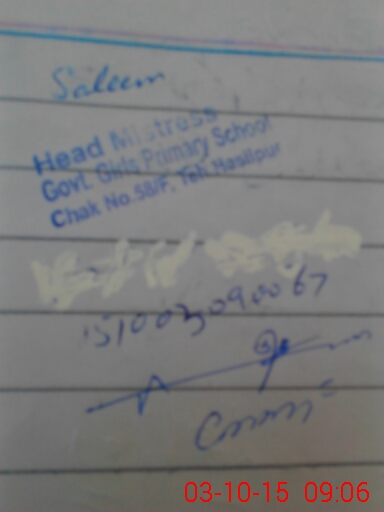 Saleem
Head Mistress
Govt. Girls Primary School
Chak No.58/F. Teh Hasilpur
151003090067
03-10-15 09:06